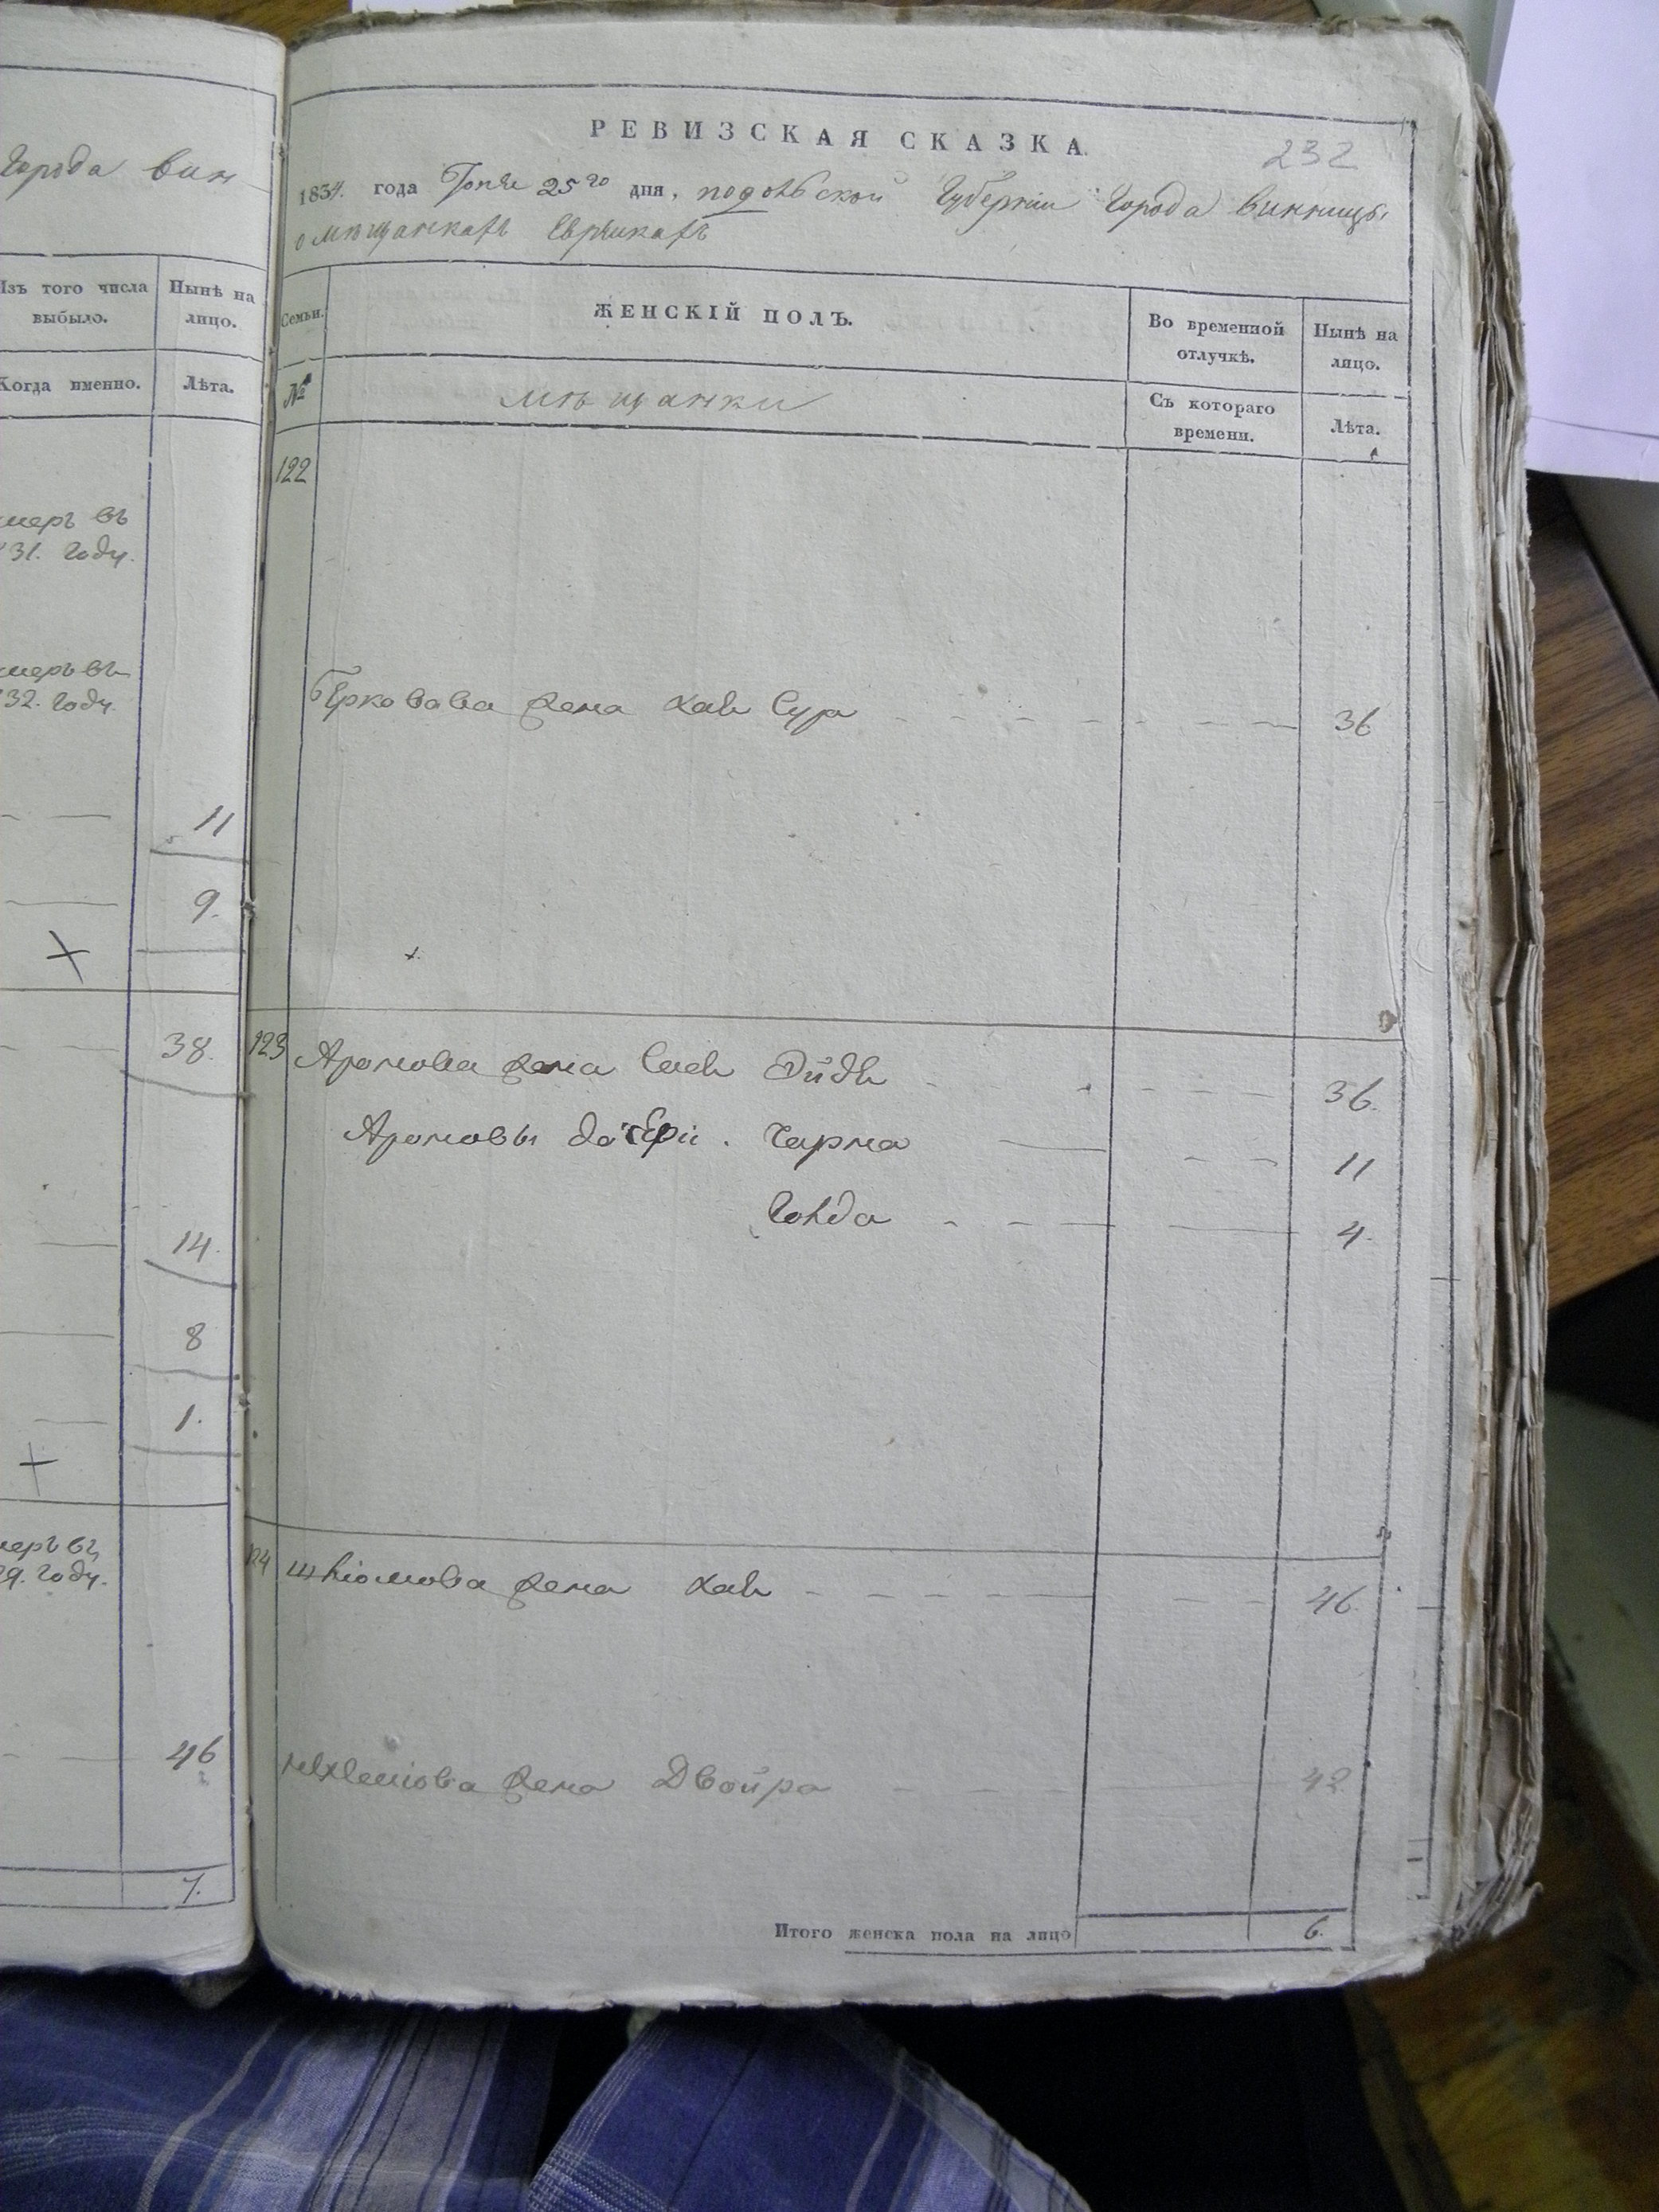 Города Вин
Изъ того числа выбыло.
Нынѣ на лицо.
Когда именно.
Лѣта.
меръ въ
31. году.
меръ въ
32. году.
11
9.
38.
14.
8
1.
меръ въ
9. году.
46
7.
РЕВИЗСКАЯ СКАЗКА.
232
1834. года Іюня 25го дня, Подольской Губерніи Города Винницы
о мѣщанкахъ Еврейкахъ
Семьи.
ЖЕНСКІЙ ПОЛЪ.
Во временной отлучкѣ.
Нынѣ на лицо.
№
мѣщанки
Съ котораго времени.
Лѣта.
122
Берковава жена Хая Сура 36
123 Аронова жена Сася Эйдя 36.
Ароновы дочери. Чарна 11
Голда 4.
124 Шліомова жена Хая 46.
жена Двойра 42
Итого женска пола на лицо 6.